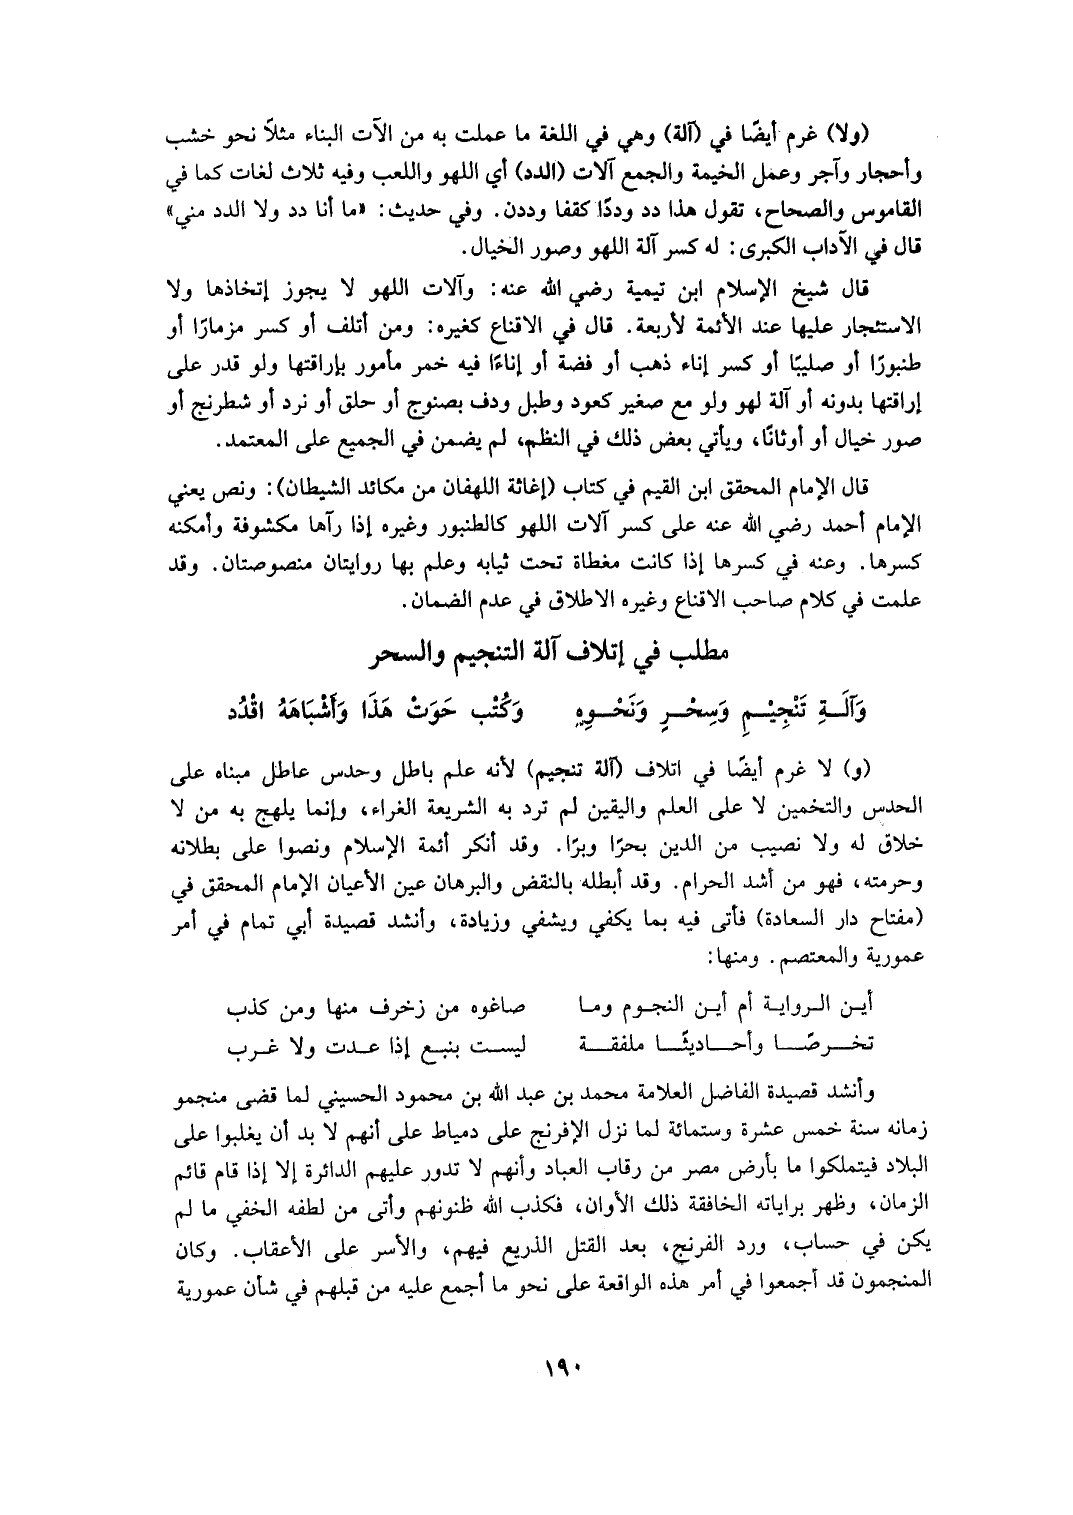 (ولا) غرم أيضًا في (آلة) وهي في اللغة ما عملت به من الآت البناء مثلاً نحو خشب
وأحجار وآجر وعمل الخيمة والجمع آلات (الدد) أي اللهو واللعب وفيه ثلاث لغات كما في
القاموس والصحاح، تقول هذا دد وددًا كقفا وددن. وفي حديث: «ما أنا دد ولا الدد مني»
قال في الآداب الكبرى: له كسر آلة اللهو وصور الخيال.
قال شيخ الإسلام ابن تيمية رضي الله عنه: وآلات اللهو لا يجوز إتخاذها ولا
الاستئجار عليها عند الأئمة لأربعة. قال في الاقناع كغيره: ومن أتلف أو كسر مزمارًا أو
طنبورًا أو صليبًا أو كسر إناء ذهب أو فضة أو إناءًا فيه خمر مأمور بإراقتها ولو قدر على
إراقتها بدونه أو آلة لهو ولو مع صغير كعود وطبل ودف بصنوج أو حلق أو نرد أو شطرنج أو
صور خيال أو أوثانًا، ويأتي بعض ذلك في النظم، لم يضمن في الجميع على المعتمد.
قال الإمام المحقق ابن القيم في كتاب (إغاثة اللهفان من مكائد الشيطان): ونص يعني
الإمام أحمد رضي الله عنه على كسر آلات اللهو كالطنبور وغيره إذا رآها مكشوفة وأمكنه
كسرها. وعنه في كسرها إذا كانت مغطاة تحت ثيابه وعلم بها روايتان منصوصتان. وقد
علمت في كلام صاحب الاقناع وغيره الاطلاق في عدم الضمان.
مطلب في إتلاف آلة التنجيم والسحر
وَآلَــةِ تَنْجِيْــمٍ وَسِحْــرٍ وَنَحْــوِهِ وَكُتْبٍ حَوَتْ هَذَا وَأَشْبَاهَهُ اقْدُد
(و) لا غرم أيضًا في اتلاف (آلة تنجيم) لأنه علم باطل وحدس عاطل مبناه على
الحدس والتخمين لا على العلم واليقين لم ترد به الشريعة الغراء، وإنما يلهج به من لا
خلاق له ولا نصيب من الدين بحرًا وبرًا. وقد أنكر أئمة الإسلام ونصوا على بطلانه
وحرمته، فهو من أشد الحرام. وقد أبطله بالنقض والبرهان عين الأعيان الإمام المحقق في
(مفتاح دار السعادة) فأتى فيه بما يكفي ويشفي وزيادة، وأنشد قصيدة أبي تمام في أمر
عمورية والمعتصم. ومنها:
أيـن الـروايـة أم أيـن النجـوم ومـا صاغوه من زخرف منها ومن كذب
تخـــرصًـــا وأحـــاديثًـــا ملفقـــة ليســت بنبــع إذا عــدت ولا غــرب
وأنشد قصيدة الفاضل العلامة محمد بن عبد الله بن محمود الحسيني لما قضى منجمو
زمانه سنة خمس عشرة وستمائة لما نزل الإفرنج على دمياط على أنهم لا بد أن يغلبوا على
البلاد فيتملكوا ما بأرض مصر من رقاب العباد وأنهم لا تدور عليهم الدائرة إلا إذا قام قائم
الزمان، وظهر براياته الخافقة ذلك الأوان، فكذب الله ظنونهم وأتى من لطفه الخفي ما لم
يكن في حساب، ورد الفرنج، بعد القتل الذريع فيهم، والأسر على الأعقاب. وكان
المنجمون قد أجمعوا في أمر هذه الواقعة على نحو ما أجمع عليه من قبلهم في شأن عمورية
١٩٠